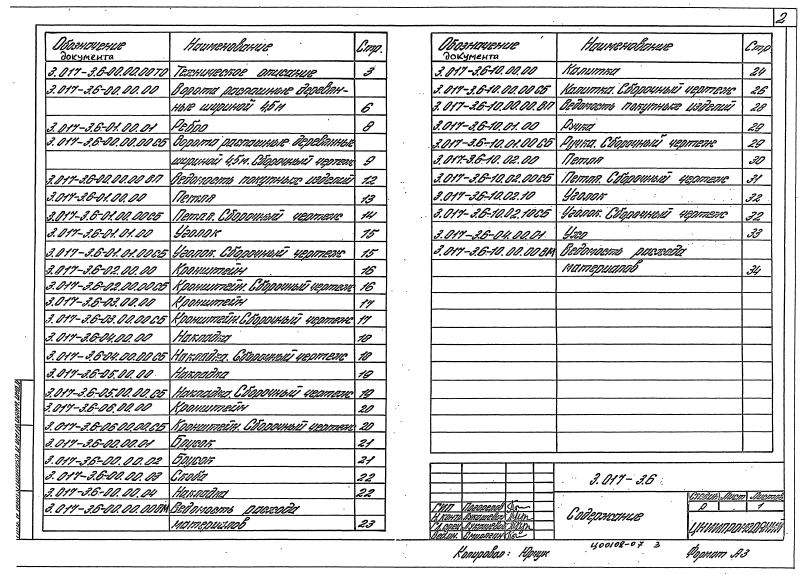 2
Обозначение документа Наименование Стр.
3.017-3.6-00.00.00ТО Техническое описание 3
3.017-3.6-00.00.00 Ворота распашные деревян-
ные шириной 4,5м 6
3.017-3.6-01.00.01 Ребро 8
3.017-3.6-00.00.00СБ Ворота распашные деревянные
шириной 4,5м. Сборочный чертеж 9
3.017-3.6-00.00.00ВП Ведомость покупных изделий 12
3.017-3.6-01.00.00 Петля 13
3.017-3.6-01.00.00СБ Петля. Сборочный чертеж 14
3.017-3.6-01.01.00 Уголок 15
3.017-3.6-01.01.00СБ Уголок. Сборочный чертеж 15
3.017-3.6-02.00.00 Кронштейн 16
3.017-3.6-02.00.00СБ Кронштейн. Сборочный чертеж 16
3.017-3.6-03.00.00 Кронштейн 17
3.017-3.6-03.00.00СБ Кронштейн. Сборочный чертеж 17
3.017-3.6-04.00.00 Накладка 18
3.017-3.6-04.00.00СБ Накладка. Сборочный чертеж 18
3.017-3.6-05.00.00 Накладка 19
3.017-3.6-05.00.00.СБ Накладка Сборочный чертеж 19
3.017-3.6-06.00.00 Кронштейн 20
3.017-3.6-06.00.00СБ Кронштейн. Сборочный чертеж 20
3.017-3.6-00.00.01 Брусок 21
3.017-3.6-00.00.02 Брусок 21
3.017-3.6-00.00.03 Скоба 22
3.017-3.6-00.00.04 Накладка 22
3.017-3.6-00.00.00ВМ Ведомость расхода
материалов 23
Обозначение документа Наименование Стр
3.017-3.6-10.00.00 Калитка 24
3.017-3.6-10.00.00СБ Калитка. Сборочный чертеж 26
3.017-3.6-10.00.00.ВП Ведомость покупных изделий 28
3.017-3.6-10.01.00 Ручка 29
3.017-3.6-10.01.00СБ Ручка. Сборочный чертеж 29
3.017-3.6-10.02.00 Петля 30
3.017-3.6-10.02.00СБ Петля. Сборочный чертеж 31
3.017-3.6-10.02.10 Уголок 32
3.017-3.6-10.02.10СБ Уголок. Сборочный чертеж 32
3.017-3.6-04.00.01 Ухо 33
3.017-3.6-10.00.00ВМ Ведомость расхода
материалов 34
3.017-3.6
ГИП
Содержание
Стадия Лист Листов
Р 1
Ц00108-07 3
Копировал: Формат А3